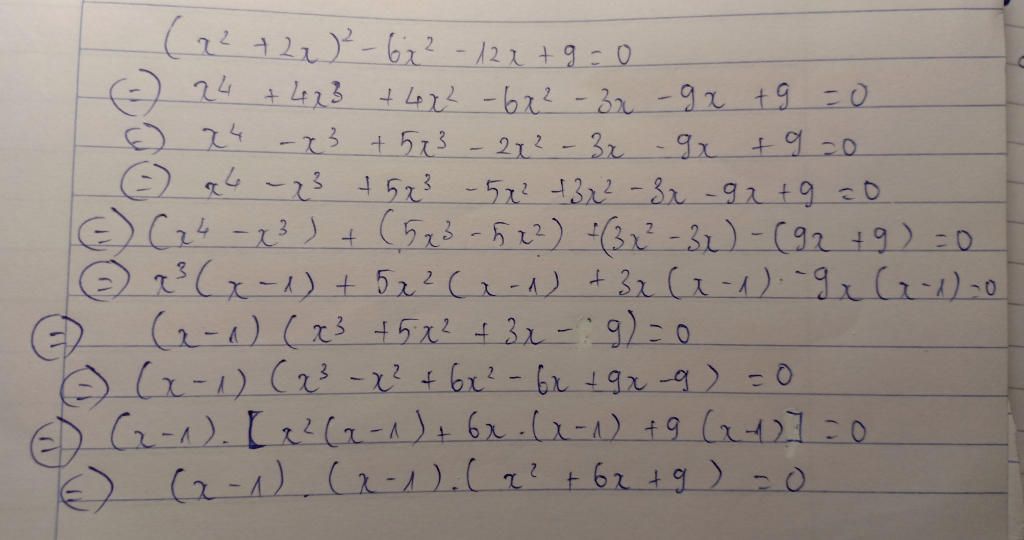 (x² + 2x)² - 6x² - 12x + 9 = 0
(=) x⁴ + 4x³ + 4x² - 6x² - 3x - 9x + 9 = 0
(=) x⁴ - x³ + 5x³ - 2x² - 3x - 9x + 9 = 0
(=) x⁴ - x³ + 5x³ - 5x² + 3x² - 3x - 9x + 9 = 0
(=) (x⁴ - x³) + (5x³ - 5x²) + (3x² - 3x) - (9x + 9) = 0
(=) x³(x-1) + 5x²(x-1) + 3x(x-1) - 9x(x-1) = 0
(=) (x-1)(x³ + 5x² + 3x - 9) = 0
(=) (x-1)(x³ - x² + 6x² - 6x + 9x - 9) = 0
(=) (x-1).[x²(x-1) + 6x.(x-1) + 9(x-1)] = 0
(=) (x-1).(x-1).(x² + 6x + 9) = 0